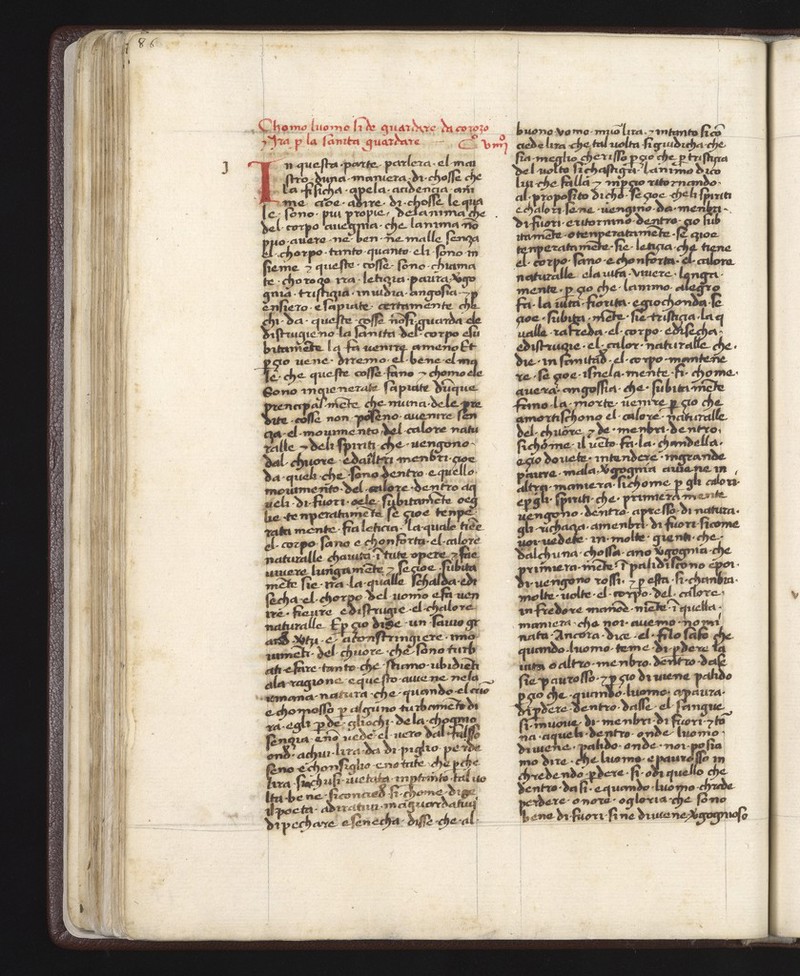 86
Chomo luomo si de guardare da corozo
Ira p la sanita guardare C° viiij°
J
In questa parte parlera el mai
stro duna maniera di chosse che
la fisicha apela acidencia ani
me cioe adire di chosse le qua
le sono piu propie delanima che
del corpo avegnia che lanima nō
puo avere ne ben ne malle senza
el chorpo tanto quanto eli sono in
sieme 7 queste cosse sono chiama
te chorozo ira letizia paura vgo
gnia tristigia inuidia angosia 7 p
ensiero esapiate certamente che
chi da queste cosse nōsi guarda ele
distrugieno la sanita del corpo esu
bitamēte la fa venire ameno Et
pcio vene diremo el bene el ma
le che queste cosse fano 7 chomo ele
sono ingienerate sapiate duque
prencipal mēte che niuna dele pre
dite cosse non posēno avenire sen
za el movimento del calore natu
ralle 7 deli spiriti che vengono
dal chuore edaltri menbri cioe
da queli che sono dentro equello
movimento del calore dentro aq
ueli di fuori oele subitamēte oeg
lie tenperatamēte se cioe tenpe
rata mente fia leticia la quale tiēe
el corpo sano e chonforta el calore
naturalle chaiuta i tute opere 7 fae
vivere lungamēte 7 se cioe subita
mēte sie ira la qualle schalda edi
secha el chorpo del uomo efa ven
ire fieure edistrugie el chalore
naturalle Ep cio dise un savio gr
e aconstringiere imo
uimēti del chuore che sono turb
ati efare tanto che stiamo ubidiēti
ala ragione equesto avene nela
umana natura che quando el
e chomosso p alguno turbamēto di
ra egli pde gliochi dela chogno
senza enō vede el vero dal falsso
onde achui lira da di piglio perde
seno echonsiglio enotate che pche
lira sia chusi uetata inptanto tal vo
lta bene siconcied si chome dise
il poeta adiratiui inaguardatiui
di pechare esenecha disse che al
buono vomo miuō lira 7 intanto sicō
ciede lira che tal volta sigiudicha che
sia meglio cherisso p cio che p tristigia
del volto sichastigia lanimo dico
lui che falla 7 inpcio ritornando
al proposito dicho se cioe cheli spiriti
echalori sene vengino da menbri
di fuori eritornino dentro cio sub
itamēte otenperatamēte se cioe
tenperatamēte sie letigia che tiene
el corpo sano echonforta el calore
naturalle ela uita vivere longa
mente p cio che lanimo alegro
fa la uita fiorita egiochonda se
cioe subita mēte sie tristigia la q
ualle rafreda el corpo edisecha
edistrugie el calor naturalle che
die in sanitad el corpo mantēne
re se cioe isnela mente si chome
avera angossia che subitamēte
fano la morte venire p cio che
amortischono el calore naturalle
del chuore 7 de menbri dentro
sichōme il uēto fa la chandella
ecio dovete intendere ingrande
paure mala vgognia avene in
altra maniera sichome p gli calori
epgli spiriti che primiera mente
vengono dentro apresso di natura
gli richaza amenbri di fuori sicome
voi vedete in molte gienti che
dalchuna chossa ano vgognia che
primiera mēte i palidiscono epoi
di vengono rossi 7 p esta si chanbia
molte volte el corpo del calore
in fredore manoe niēte i quella
maniera che noi avemo nomi
nata Ancora dice el filosafo che
quando luomo teme di pdere la
uita o altro menbro dentro dase
sie paurosso 7 p cio diviene palido
p cio che quando luomo apaura
di pdere dentro dasse el sangue
si muove di menbri di fuori 7 to
na aqueli dentro onde luomo
diviene palido onde noi posia
mo dire che luomo e paurosso in
chredendo pdere si odi quello che
dentro dasi equando luomo chrede
perdere onore ogloria che sono
bene di fuori sine diviene vgognioso